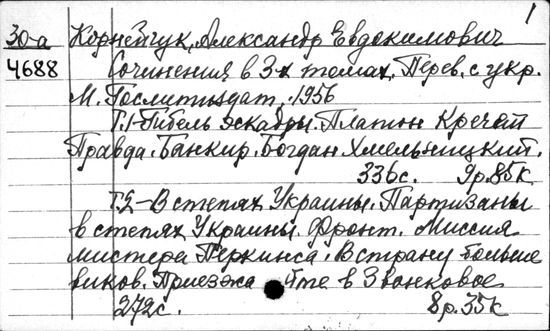 1
30-а Корнейчук, Александр Евдокимович
4688 Сочинения в 3-х томах. Перев. с укр.
М. Гослитиздат, 1956
Т.1-Гибель эскадры. Платон Кречет
Правда. Банкир. Богдан Хмельницкий.
336с. 9р.85к
Т.2-В степях Украины. Партизаны
в степях Украины. Фронт. Миссия
мистера Перкинса. В страну больше
виков. Приезжайте в Звонковое
272с. 8р.35к